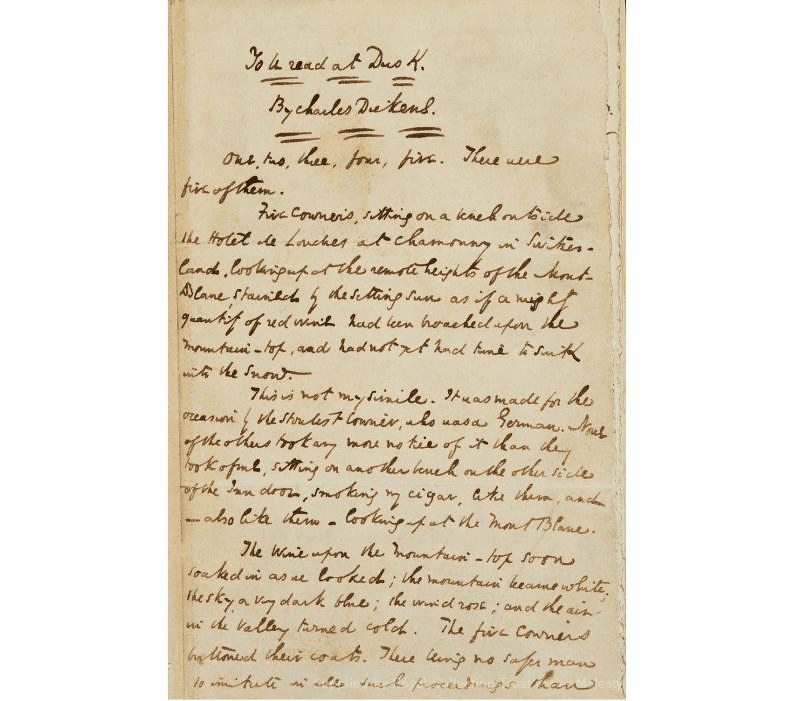 To be read at Dusk.
By Charles Dickens.
One, two, three, four, five. There were
five of them.
Five Couriers, sitting on a bench outside
the Hotel de Londres at Chamonny in Switzer-
land, looking up at the remote heights of the Mont-
Blanc, stained by the setting sun as if a mighty
quantity of red wine had been broached upon the
mountain-top, and had not yet had time to sink
into the snow.
This is not my simile. It was made for the
occasion by the stoutest Courier, who was a German. None
of the others took any more notice of it than they
took of me, sitting on another bench on the other side
of the Inn door, smoking my cigar, like them, and
— also like them — looking up at the Mont Blanc.
The wine upon the mountain-top soon
soaked in as we looked; the mountain became white;
the sky, a very dark blue; the wind rose; and the air
in the valley turned cold. The five Couriers
buttoned their coats. There being no safer man
to imitate in all such proceedings than